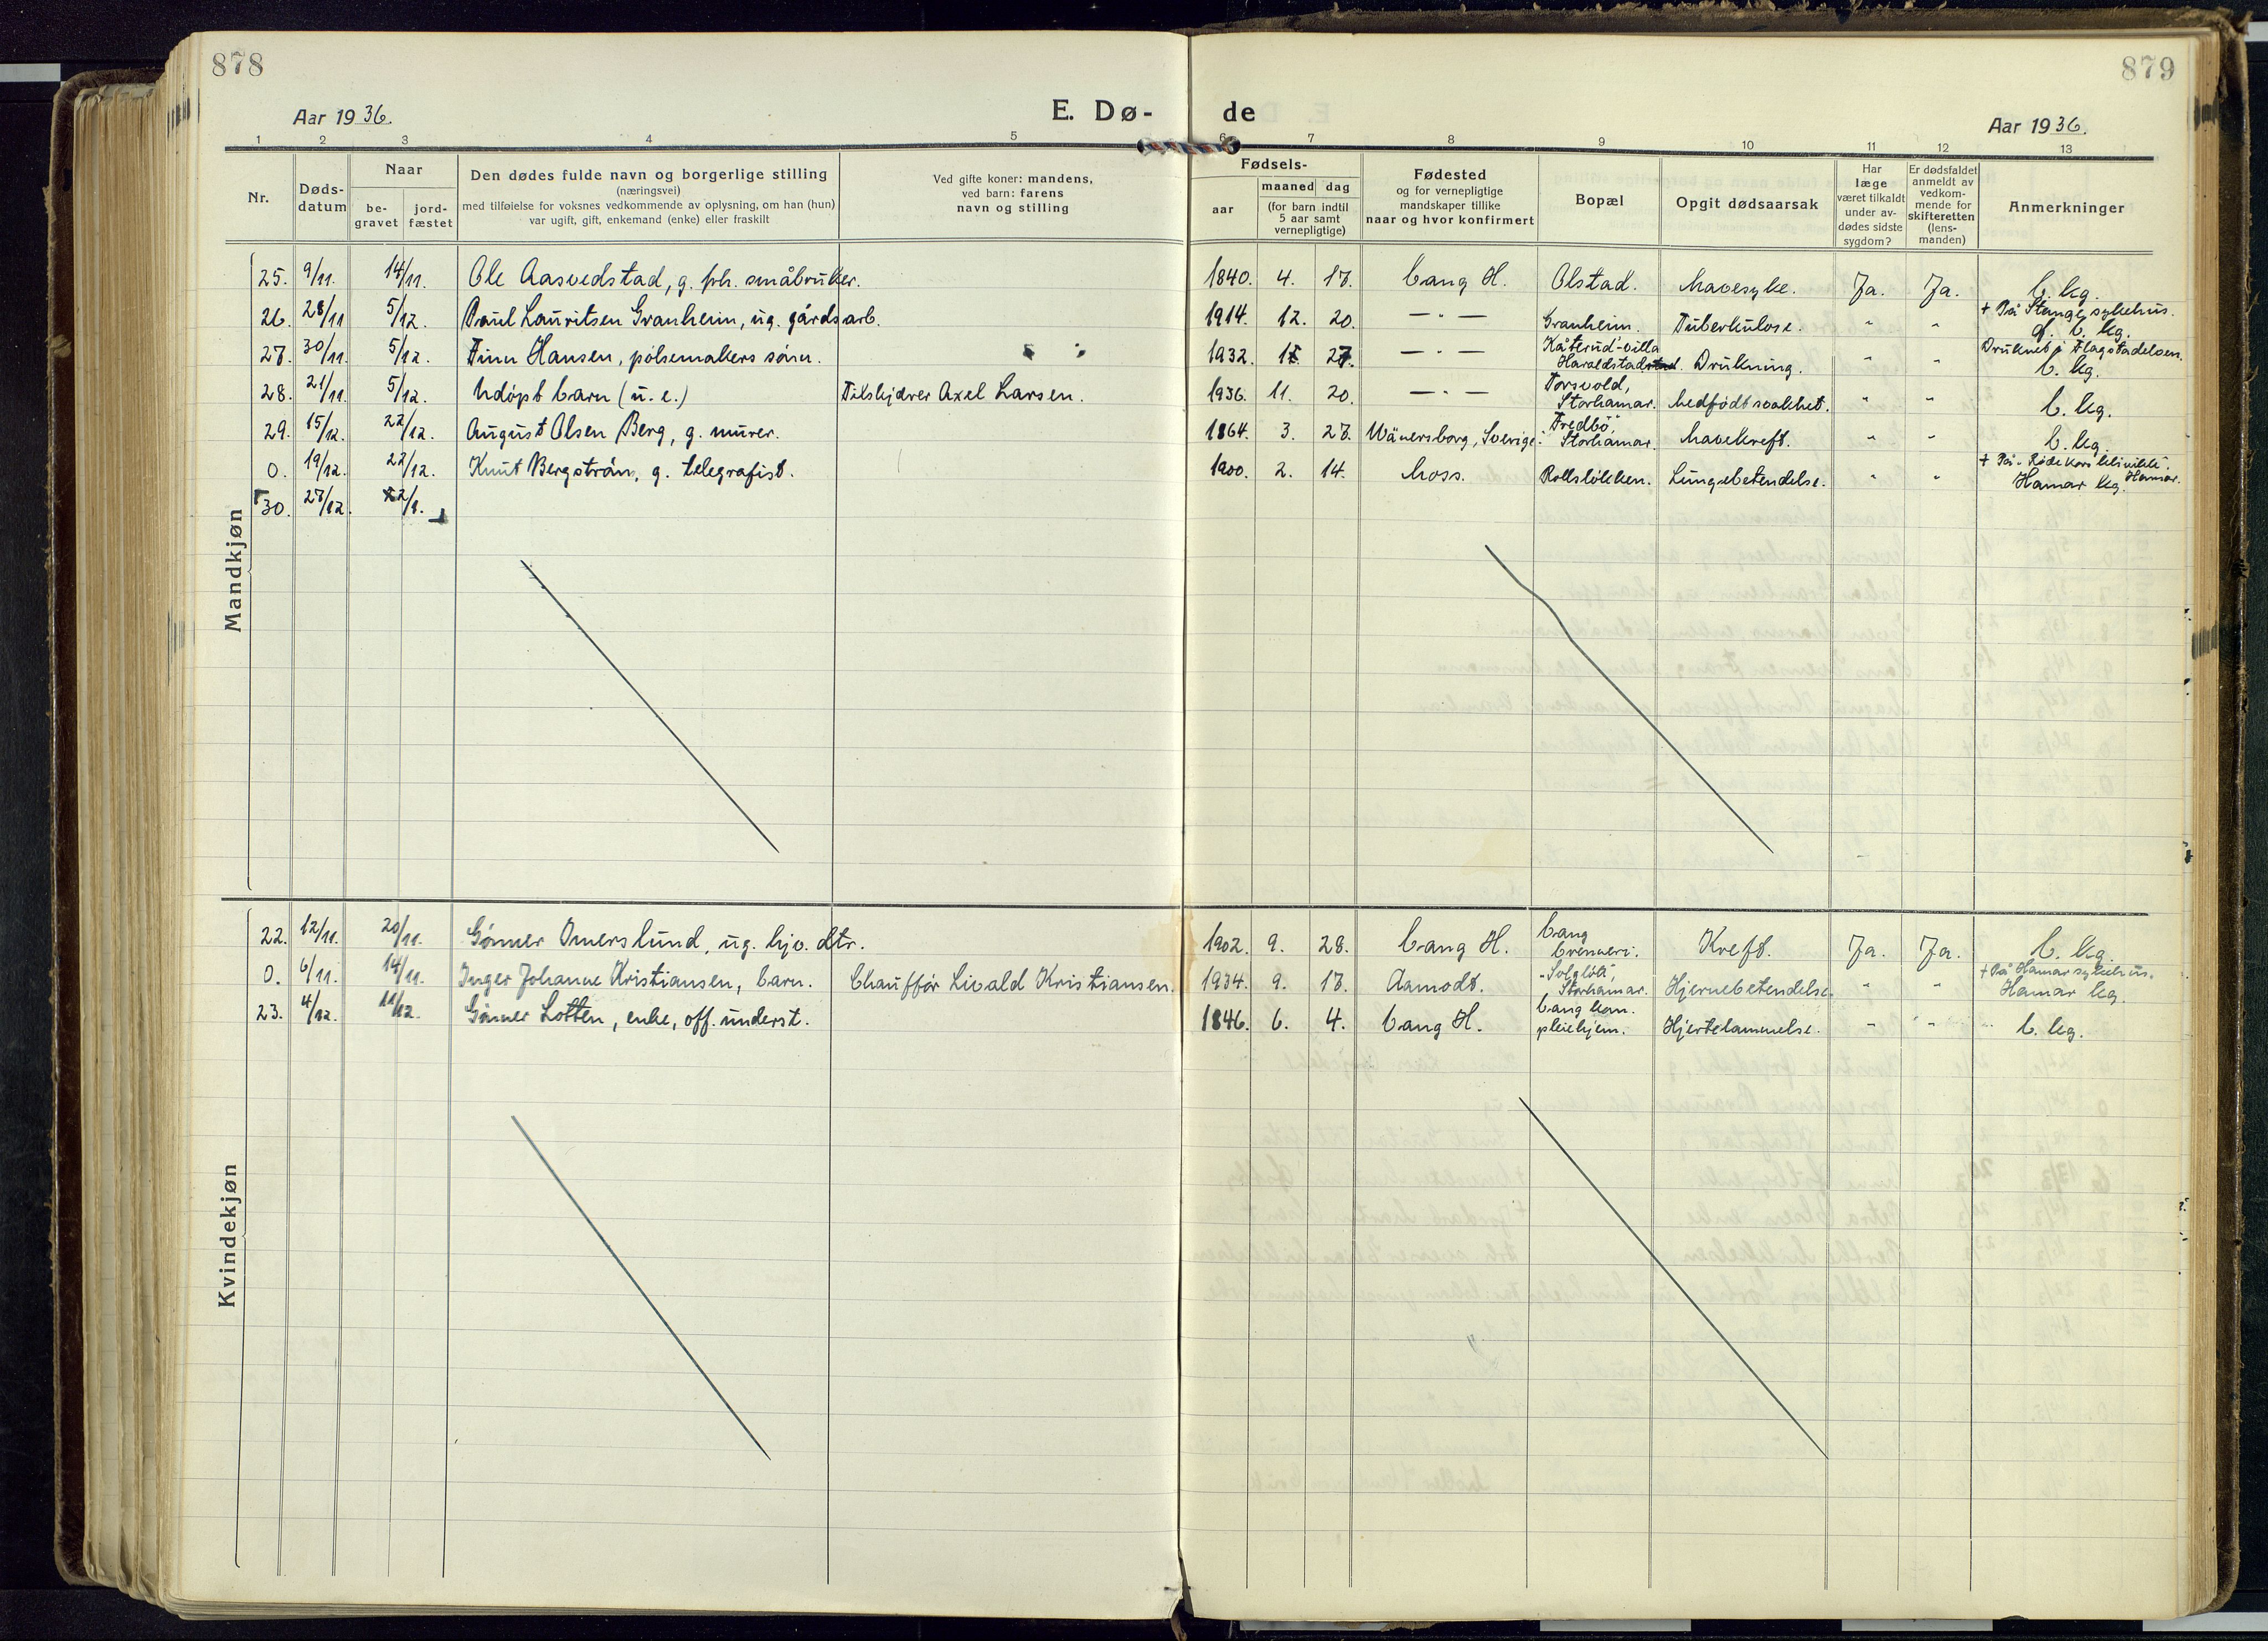 878
879
Aar 1936.
E. Dø-
de
Aar 1936.
1 2 3 4 5 6 7 8 9 10 11 12 13
Nr.
Døds-
datum
Naar
be-
gravet
jord-
fæstet
Den dødes fulde navn og borgerlige stilling
(næringsvei)
med tilføielse for voksnes vedkommende av oplysning, om han (hun)
var ugift, gift, enkemand (enke) eller fraskilt
Ved gifte koner: mandens,
ved barn: farens
navn og stilling
Fødsels-
aar
maaned dag
(for barn indtil
5 aar samt
vernepligtige)
Fødested
og for vernepligtige
mandskaper tillike
naar og hvor konfirmert
Bopæl
Opgit dødsaarsak
Har
læge
været tilkaldt
under av-
dødes sidste
sygdom?
Er dødsfaldet
anmeldt av
vedkom-
mende for
skifteretten
(lens-
manden)
Anmerkninger
Mandkjøn
25. 9/11. 14/11. Ole Aasvedstad, g. fhl. småbruker. 1840. 4. 17. Vang H. Olstad. Mavesyke. Ja. Ja. V. kg.
26. 28/11 5/12. Paul Lauritsen Granheim, ug. gårdsarb. 1914. 12. 20. — " — Granheim. Tuberkulose. " " + På Stange sykehus.
V. kg.
27. 30/11. 5/12. Finn Hansen, pølsemakers sønn. 1932. 27. — " — Kåterud-villa
Haraldstad. Drukning. " " Druknet i Flagstadelven.
V. kg.
28. 21/11. 5/12. Udøpt barn (u. e.) Filskjærer Axel Larsen. 1936. 11. 20. — " — Torsvold,
Storhamar. Medfødt svakhet. " " V. kg.
29. 15/12. 22/12. August Olsen Berg, g. murer. 1864. 3. 27. Wänersborg, Sverige. "Fredbo",
Storhamar. Mavekreft. " " V. kg.
0. 19/12. 22/12. Knut Bergström, g. telegrafist. 1900. 2. 14. Moss. Rollsløkken. Lungebetendelse. " " + På "Røde Kors klinikk", Hamar.
Hamar kg.
30. 27/12. 2/1.
Kvindekjøn
22. 12/11. 20/11. Gunner Omerslund, ug. hjv. dtr. 1902. 9. 28. Vang H. Vang
brenneri. Kreft. Ja. Ja. V. kg.
0. 6/11. 14/11. Inger Johanne Kristiansen, barn. Chauffør Livald Kristiansen. 1934. 9. 17. Aamodt. "Solgløtt",
Storhamar. Hjernebetendelse. " " + På Hamar sykehus.
Hamar kg.
23. 4/12. 11/12. Gunner Lotten, enke, off. underst. 1846. 6. 4. Vang H. Vang kom.
pleiehjem. Hjertelammelse. " " V. kg.